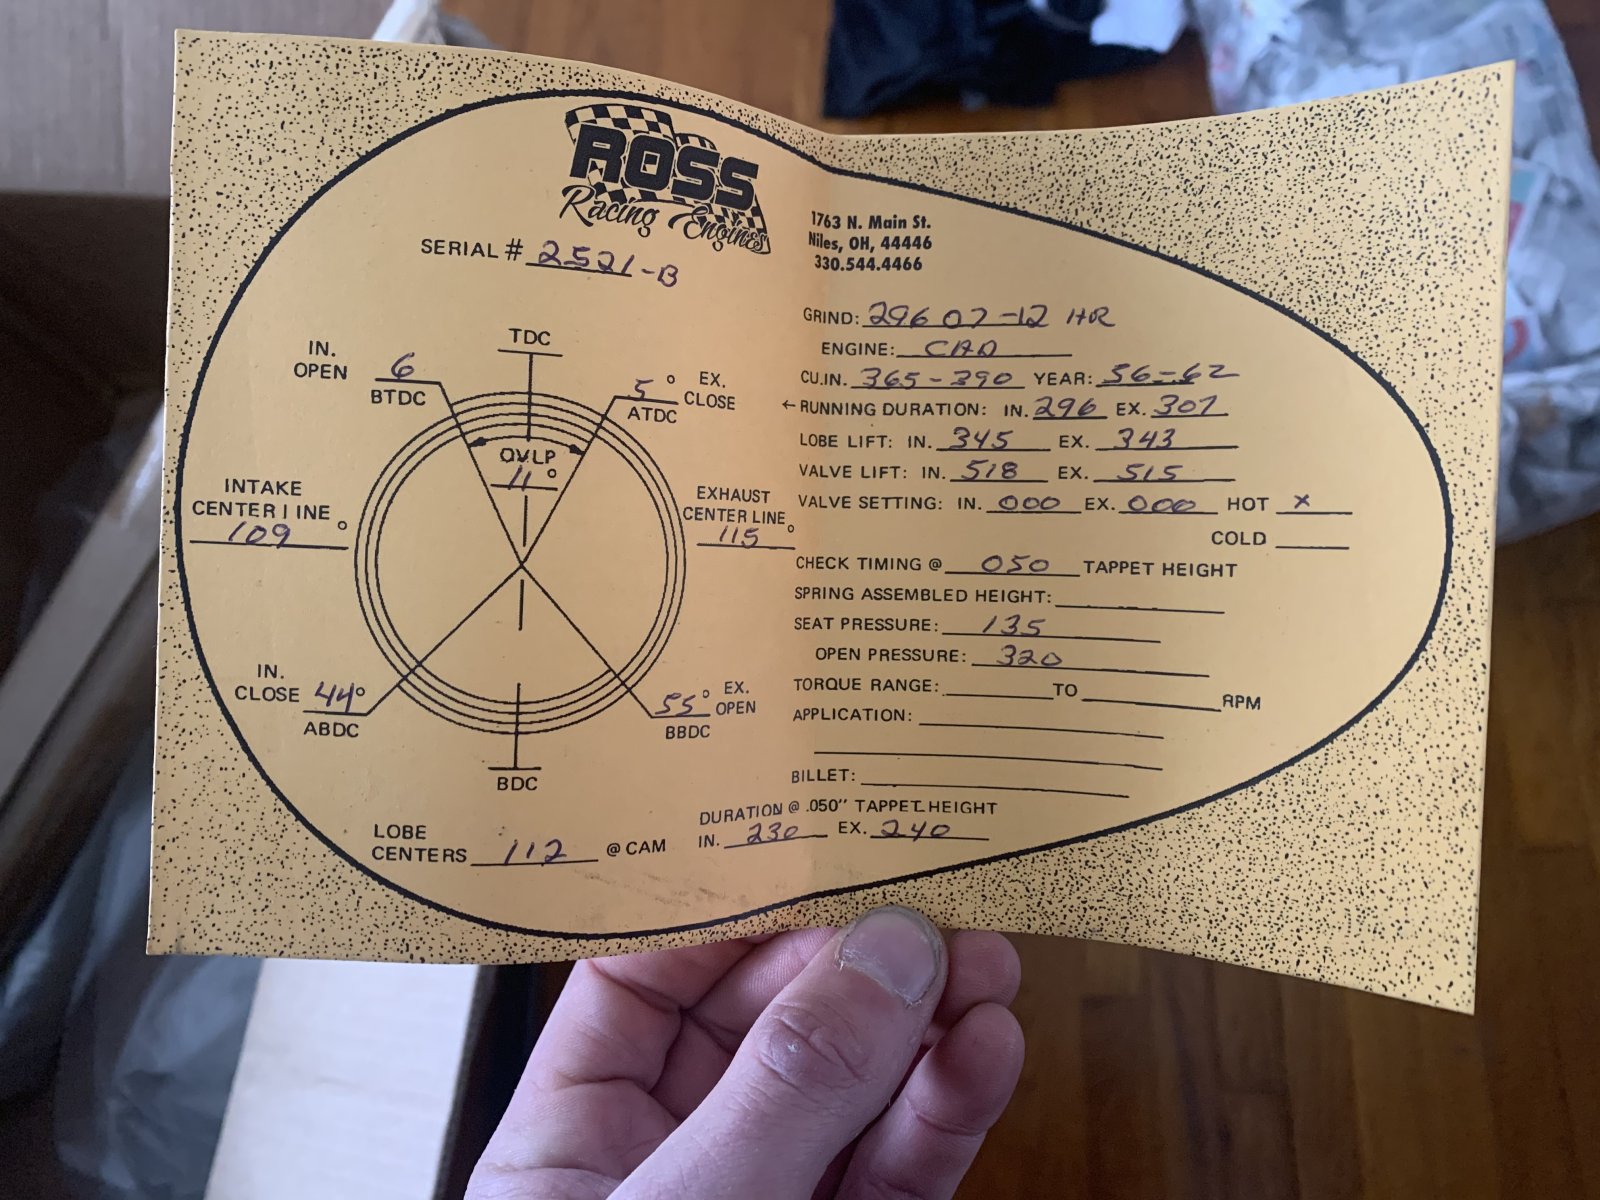 ROSS
Racing Engines
1763 N. Main St.
Niles, OH, 44446
330.544.4466
SERIAL # 2521-B
TDC
IN. OPEN 6 BTDC
5° EX. CLOSE ATDC
OVLP
11°
INTAKE CENTERLINE 109°
EXHAUST CENTER LINE 115°
IN. CLOSE 44° ABDC
55° EX. OPEN BBDC
BDC
LOBE CENTERS 112 @ CAM
GRIND: 296 07-12 HR
ENGINE: CAD
CU.IN. 365-390 YEAR: 56-62
←RUNNING DURATION: IN. 296 EX. 307
LOBE LIFT: IN. 345 EX. 343
VALVE LIFT: IN. 518 EX. 515
VALVE SETTING: IN. 000 EX. 000 HOT x
COLD
CHECK TIMING @ 050 TAPPET HEIGHT
SPRING ASSEMBLED HEIGHT:
SEAT PRESSURE: 135
OPEN PRESSURE: 320
TORQUE RANGE: TO RPM
APPLICATION:
BILLET:
DURATION @ .050" TAPPET HEIGHT
IN. 230 EX. 240